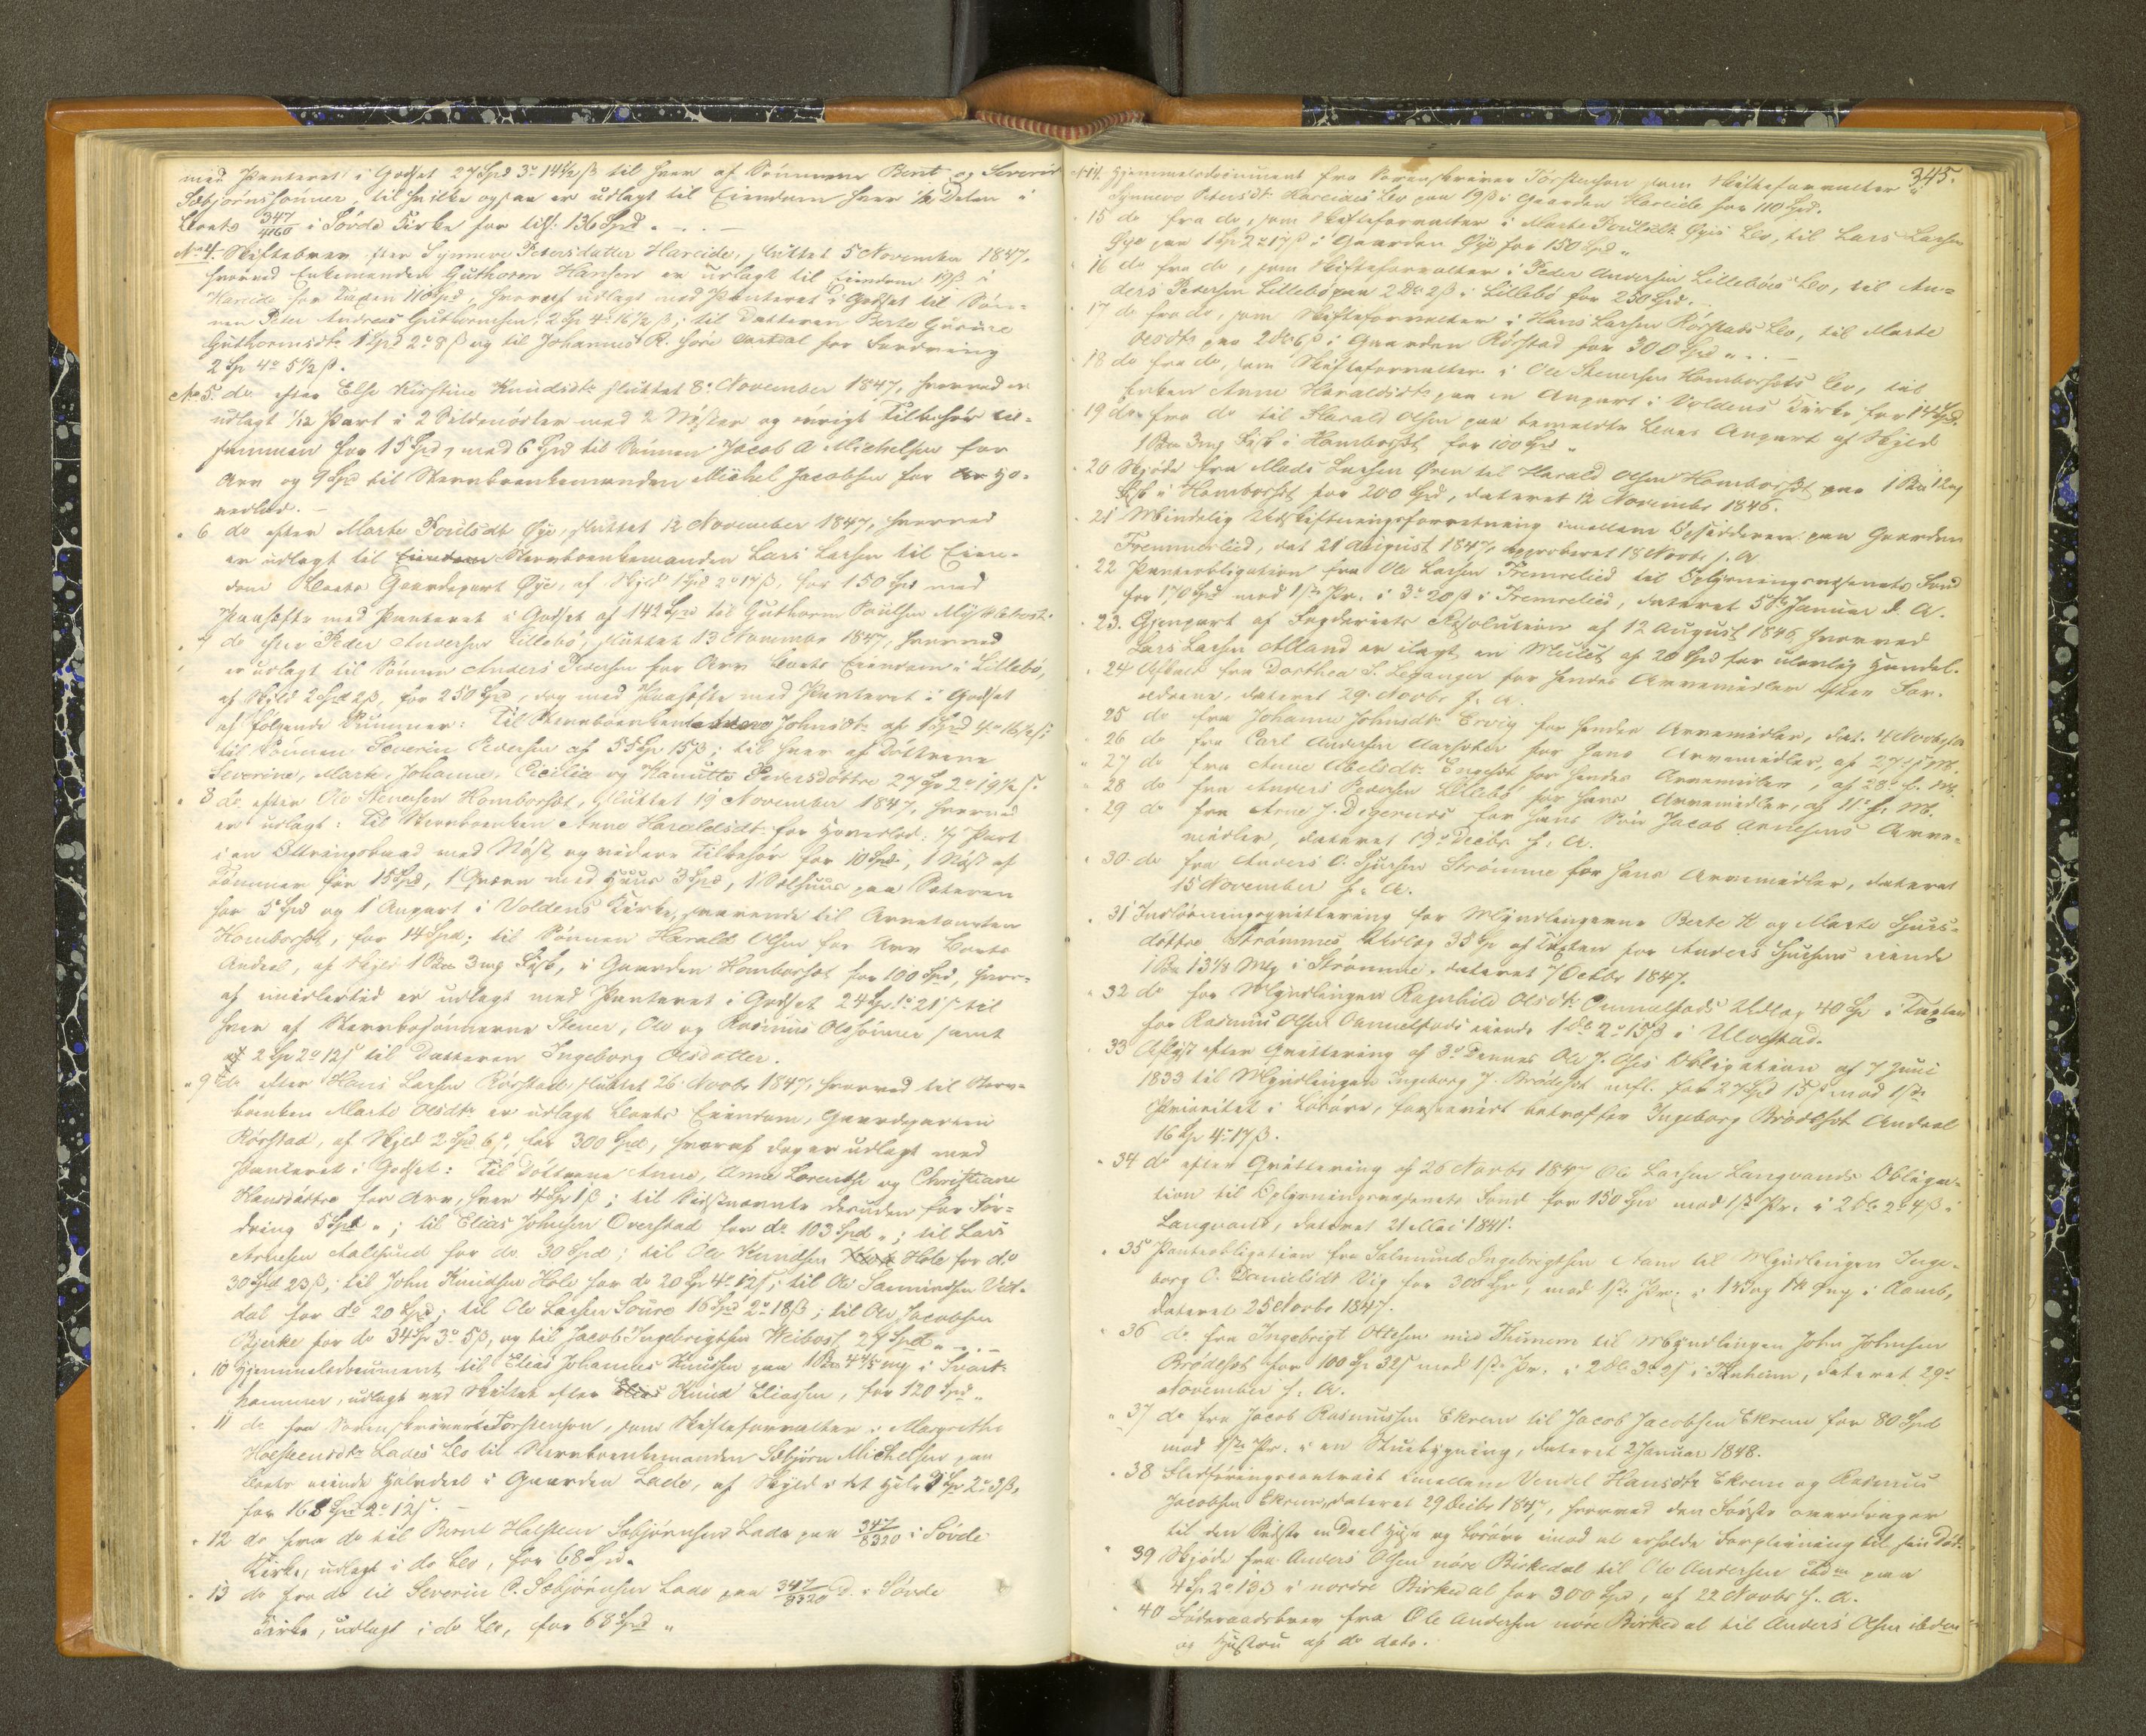 med Panteret i Godset 27 Spd 3 14½ ß til hver af Sønnerne Bent og Severin
Sæbjørnssønner, til hvilke ogsaa er udlagt til Eiendom hver ½ Delen i
Boets 347/4160 i Søvde Kirke for tils. 136 Spd.
No 4. Skiftebrev efter Synneve Petersdatter Hareide, sluttet 5 November 1847,
hvorved Enkemanden Guthorm Hansen er udlagt til Eiendom 19 ß i
Hareide for Taxten 110 Spd, hvoraf udlagt med Panteret i Godset til Søn-
nen Peter Andreas Guthormsen, 2 Sp 4 16½ ß; til Datteren Berte Gurine
Guthormsdtr 1 Spd 2 8 ß og til Johannes R. Høre Aartdal for Fordring
2 Sp 4 5½ ß.
No 5. do efter Else Kirstine Knudsdtr sluttet 8 November 1847, hvorved er
udlagt 1/12 Part i 2 Sildenøter med 2 Nøster og øvrigt Tilbehør til-
sammen for 15 Spd, med 6 Spd til Sønnen Jacob A Michelsen for
Arv og 9 Spd til Stervboenkemanden Michel Jacobsen for Ho-
vedlod.
6 do efter Marte Poulsdt Øye, sluttet 12 November 1847, hvorved
er udlagt til Eiendom Stervboenkemanden Lars Larsen til Eien-
dom Boets Gaardepart Øye, af Skyld 1 Spd 2 17 ß, for 150 Spd med
Paahefte med Panteret i Godset af 142 Spd til Guthorm Poulsen Myklebost.
7 do efter Peder Andersen Lillebø, sluttet 13 November 1847, hvorved
er udlagt til Sønnen Anders Pedersen for Arv Boets Eiendom i Lillebø,
af Skyld 2 Spd 2 ß, for 250 Spd, dog med Paahefte med Panteret i Godset
af følgende Summer: Til Stervboenken Johnsdtr af 1 Spd 4 16½ ß;
til Sønnen Severin Pedersen af 55 Sp 15 ß; til hver af Døttrene
Severine, Marte, Johanne, Cicilia og Hanutte Pedersdøttre 27 Sp 2 19½ ß.
8 do efter Ole Stenersen Homborset, sluttet 19 November 1847, hvorved
er udlagt: til Stervboenken Anne Haraldsdt. for Hovedlod: ½ Part
i en Ottringsbaad med Nøst og videre Tilbehør for 10 Spd, 1 Nøst af
Tømmer for 15 Spd, 1 Qværn med Huus 3 Spd, 1 Selhuus paa Sæteren
for 5 Spd og 1 Anpart i Voldens Kirke, svarende til
Homborset, for 14 Spd; til Sønnen Harald Olsen for Arv Boets
Andeel, af Skyld 1 Pd 3 mg Fisk, i Gaarden Homborset for 100 Spd, hvor-
af imidlertid er udlagt med Panteret i Godset 24 Sp 1 21 ß til
hver af Stervbosønnerne Stener, Ole og Rasmus Olssønner samt
af 2 Sp 2 12 ß til Datteren Ingeborg Olsdatter.
9 do efter Hans Larsen Rørstad, sluttet 26 Novbr 1847, hvorved til Sterv-
boenken Marte Olsdtr er udlagt Boets Eiendom, Gaardeparten
Rørstad, af Skyld 2 Spd 6 ß, for 300 Spd, hvoraf dog er udlagt med
Panteret i Godset: til Døttrene Anne, Anne Lorentse og Christiane
Hansdøttre for Arv, hver 4 Sp 1 ß; til Sidstnævnte desuden for For-
dring 5 Spd; til Elias Johnsen Overstad for do 103 Spd; til Lars
Arnesen Aalesund for do 30 Spd; til Ole Knudsen Hole for do
30 Spd 23 ß; til John Knudsen Hole for do 20 Sp 4 12 ß; til Ole Samundsen Vid-
dal for do 20 Spd; til Ole Larsen Soure 16 Spd 2 18 ß; til Ole Jacobsen
Bjerke for do 34 Sp 3 5 ß, og til Jacob Ingebrigtsen Weibost 24 Spd
10 Hjemmelsdocument til Elias Johannes Knudsen paa 1 Pd 4⅘ mg i Svart-
hammer, udlagt ved Skiftet efter Elias Knud Eliassen, for 120 Spd
11 do fra Sorenskriver Torstenson, som Skifteforvalter i Margrethe
Holstensdtr Lades Bo til Stervboenkemanden Sæbjørn Michelsen paa
Boets eiende Halvdeel i Gaarden Lade, af Skyld i det Hele 3 Sp 2 3 ß,
for 168 Spd 2 12 ß.
12 do fra do til Bernt Holsten Sæbjørnsen Lade paa 347/8320 i Søvde
Kirke, udlagt i do Bo, for 68 Spd.
13 do fra do til Severin C. Sæbjørnsen Lade paa 347/8320 D. i Søvde
Kirke, udlagt i do Bo, for 68 Spd
345.
No 14. Hjemmelsdocument fra Sorenskriver Torstenson som Skifteforvalter i
Synneve Petersdt. Hareides Bo paa 19 ß i Gaarden Hareide for 110 Spd.
15 do fra do, som Skifteforvalter i Marte Poulsdt. Øyes Bo, til Lars Larsen
Øye paa 1 Sp 2 17 ß i Gaarden Øye for 150 Spd
16 do fra do, som Skifteforvalter i Peder Andersen Lillebøes Bo, til An-
ders Pedersen Lillebø paa 2 Dr 2 ß i Lillebø for 250 Spd.
17 do fra do, som Skifteforvalter i Hans Larsen Rørstads Bo, til Marte
Olsdtr paa 2 Dr 6 ß i Gaarden Rørstad for 300 Spd
18 do fra do, som Skifteforvalter i Ole Stenersen Homborsets Bo, til
Enken Anne Haraldsdt. paa en Anpart i Voldens Kirke for 14 Spd.
19 do fra do til Harald Olsen paa bemeldte Boes Anpart af Skyld
1 Pd 3 mg Fisk i Homborset for 100 Spd
20 Skjøde fra Mads Larsen Øren til Harald Olsen Homborset paa 1 Pd 12 mg
Fisk i Homborset for 200 Spd, dateret 12 November 1846.
21 Mindelig Udskiftningsforretning imellem Opsidderne paa Gaarden
Fremmerlied, dat 21 August 1847, approberet 18 Novbr s. A.
22 Panteobligation fra Ole Larsen Fremrelied til Oplysningsvæsenets Fond
for 170 Spd med 1ste Pr. i 3 20 ß i Fremrelied, dateret 5te Januar d. A.
23. Gjenpart af Fogderiets Resolution af 12 August 1846, hvorved
Lars Larsen Alland er ilagt en Mulct af 20 Spd for ulovlig Handel.
24 Afkald fra Dorthea S. Leganger for hendes Arvemidler efter For-
ældrene, dateret 29 Novbr f. A.
25 do fra Johanne Johnsdtr Ervig for hendes Arvemidler, dat. 4 Novbr f A
26 do fra Carl Andersen Aarseter for hans Arvemidler, af 27 f. M.
27 do fra Anne Abelsdt. Engeset for hendes Arvemidler, af 28 f. M.
28 do fra Anders Pedersen Lillebø for hans Arvemidler, af 11 f. M.
29 do fra Arne J. Digernes for hans Søn Jacob Arnesens Arve-
midler, dateret 19 Decbr f. A.
30 do fra Anders O. Sjursen Strømme for hans Arvemidler, dateret
15 November f. A.
31 Indløsningsqvittering for Myndlingerne Berte K og Marte Sjurs-
døttre Strømmes Udlæg 35 Sp af Taxten for Anders Sjursens eiende
1 Pd 13⅓ Mg i Strømme, dateret 7 Octbr 1847.
32 do for Myndlingen Ragnhild Olsdt. Ommelfods Udlæg 40 Sp i Taxten
for Rasmus Olsen Ommelfods eiende 1 Dl 2 15 ß i Ulvestad.
33 Aflyst efter Qvittering af 3 Dennes Ole J. Oses Obligation af 7 Juni
1833 til Myndlingen Ingeborg J. Brødeset mfl. for 27 Spd 15 ß mod 1ste
Prioritet i Løsøre, forsaavidt betræffer Ingeborg Brødeset Andeel
16 Sp 4 17 ß.
34 do efter Qvittering af 26 Novbr 1847 Ole Larsen Langvands Obliga-
tion til Oplysningsvæsenets Fond for 150 Spd mod 1ste Pr. i 2 Dl 2 4 ß i
Langvand, dateret 21 Mai 1841.
35 Panteobligation fra Salmund Ingebrigtsen Aam til Myndlingen Inge-
borg O. Danielsdt Vig for 300 Spd, mod 1ste Pr. i 1 Vog 1 mg i Aam,
dateret 25 Novbr 1847.
36 do. fra Ingebrigt Ottesen med Thunem til Myndlingen John Johnsen
Brødeset for 100 Sp 32 ß mod 1ste Pr. i 2 Dl 3 2 ß i Thunheim, dateret 29
November f. A.
37 do fra Jacob Rasmussen Ekrem til Jacob Jacobsen Ekrem for 80 Spd
mod 1ste Pr. i en Stuebygning, dateret 2 Januar 1848.
38 Fledføringscontract imellem Vendel Hansdtr Ekrem og Rasmus
Jacobsen Ekrem, dateret 29 Decbr 1847, hvorved den Første overdrager
til den Sidste en Deel Huse og Løsøre imod at erholde Forpleining til sin Død.
39 Skjøde fra Anders Olsen nøre Birkedal til Ole Andersen ibdm paa
4 Sp 2 13 ß i nordre Birkedal for 300 Spd, af 22 Novbr f. A.
40 Føderaadsbrev fra Ole Andersen nøre Birkedal til Anders Olsen ibdm
og Hustru af do dato.